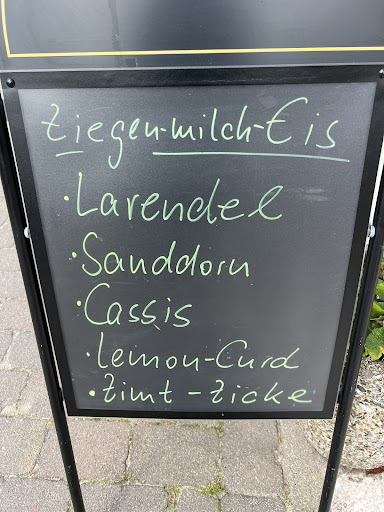 Ziegen-milch-Eis
• Lavendel
• Sanddorn
• Cassis
• Lemon-Curd
• Zimt-Zicke